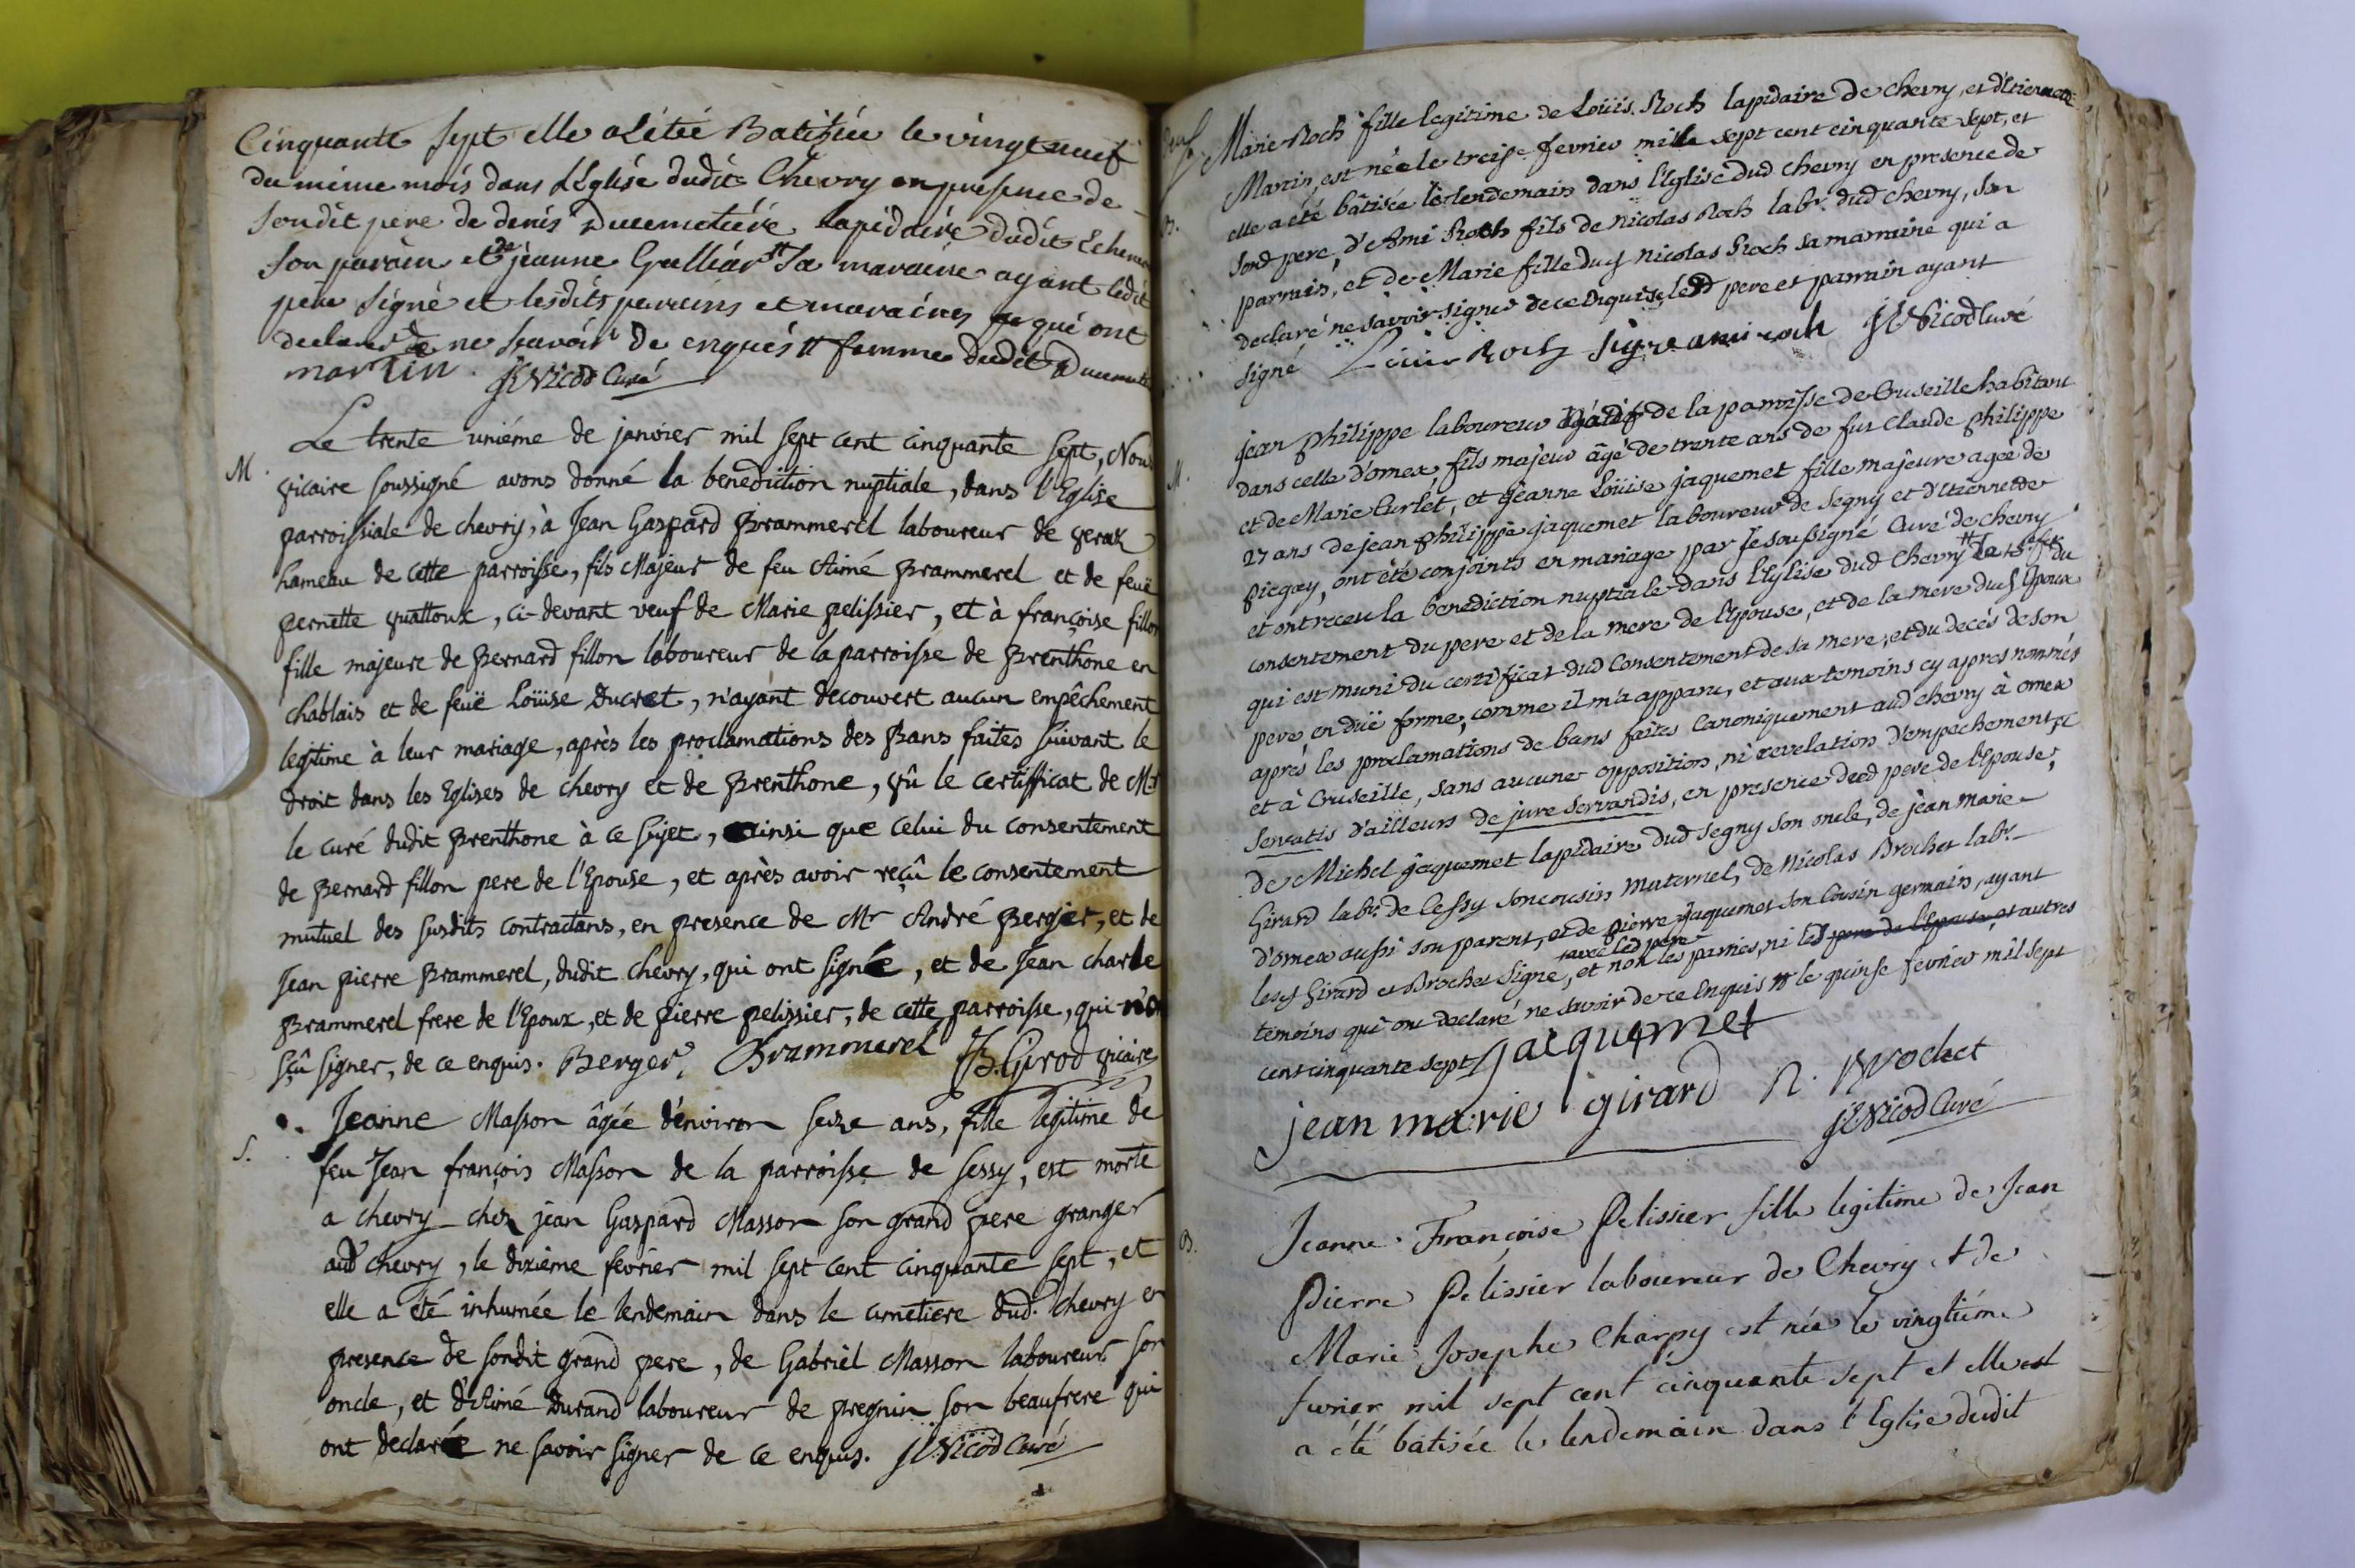 Cinquante sept elle a étée Batizée le vingt neuf
du même mois dans L'Eglise dudit Chevry en presence de
soudit pere de denis Ducimetière lapidaire dudit
son parain et de jeanne Gulliar # sa maraine ayant ledit
pere signé et lesdits parains et maraines qui ont
declaré de ne savoir de enquis # femme dudit
martin. Nicod Curé
M. Le trente unième de janvier mil sept cent cinquante sept, Nous
vicaire soussigné avons donné la benediction nuptiale, dans l'Eglise
parroissiale de chevry, à Jean Gaspard Brammerel laboureur de veraz
hameau de cette parroisse, fils Majeur de feu Aimé Brammerel et de feuë
pernette quattoux, ci-devant veuf de Marie pelissier, et à françoise fillon
fille majeure de Bernard fillon laboureur de la parroisse de Brenthone en
chablais et de feuë Loüise Ducret, n'ayant decouvert aucun empêchement
legitime à leur mariage, après les proclamations des Bans faites suivant le
droit dans les Eglises de chevry et de Brenthone, vû le certifficat de Mr
le curé dudit Brenthone à ce sujet, ainsi que celui du consentement
de Bernard fillon pere de l'Epouse, et après avoir reçû le consentement
mutuel des susdits contractans, en presence de Mr André Berger, et de
Jean pierre Brammerel, dudit chevry, qui ont signé, et de Jean charle
Brammerel frere de l'Epoux, et de pierre pelissier, de cette parroisse, qui n'ont
sçû signer, de ce enquis. Berger, Brammerel JB. Girod vicaire
S. Jeanne Masson âgée d'environ seize ans, fille legitime de
feu Jean françois Masson de la parroisse de sessy, est morte
a chevry chez jean Gaspard Masson son grand pere granger
aud chevry, le dixième fevrier mil sept cent cinquante sept, et
elle a été inhumée le lendemain dans le cimetiere dud. chevry en
presence de sondit grand pere, de Gabriel Masson laboureur son
oncle, et d'Aimé Durand laboureur de pregnin son beaufrere qui
ont declaré ne savoir signer de ce enquis. Nicod Curé
Marie Roch fille legitime de Loüis Roch lapidaire de chevry, et d'Etiennette
Martin, est née le treise fevrier mille sept cent cinquante sept, et
B. elle a été bâtisée le lendemain dans l'Eglise dud chevry en presence de
sond pere, d'Ami Roch fils de Nicolas Roch labr. dud chevry, son
parrain, et de Marie fille dud Nicolas Roch sa marraine qui a
declaré ne savoir signer de ce enquise, led pere et parrain ayant
signé Louis Roch ami roch Nicod Curé
M. jean philippe laboureur natif de la parroisse de Cruseille habitant
dans celle d'ornex, fils majeur âgé de trente ans de fut Claude philippe
et de Marie Curlet, et jeanne Loüise jaquemet fille majeure agée de
27 ans de jean philippe jaquemet laboureur de Segny et d'Etiennette
piegay, ont été conjoints en mariage par je soussigné Curé de chevry
et ont receu la benediction nuptiale dans l'Eglise dud Chevry # du
consentement du pere et de la mere de l'Epouse, et de la mere dud Epoux
qui est muni du certificat dud Consentement de sa mere, et du decès de son
pere en duë forme, comme il m'a apparu, et aux temoins cy apres nommés
après les proclamations de bans faites Canoniquement aud chevry à ornex
et à Cruseille, sans aucune opposition, ni revelation d'empêchement, &
servatis d'ailleurs de jure servandis, en presence dud pere de l'Epouse,
de Michel jaquemet lapidaire dud segny son oncle, de jean marie
Girard labr. de Cessy son cousin maternel, de Nicolas Brochet labr.
d'ornex aussi son parent, et de pierre jaquemet son Cousin germain, ayant
lesd Girard et Brochet signe, avec led pere et non les parties, ni led pere de l'Epouse, et autres
temoins qui ont declaré ne savoir de ce enquis # le quinse fevrier mil sept
cent cinquante sept jacquemet
jean marie girard n. brochet
Nicod Curé
B. Jeanne Françoise Pelissier fille legitime de Jean
Pierre Pelissier laboureur de Chevry et de
Marie Josephe Charpy est née le vingtiéme
fevrier mil sept cent cinquante sept et elle est
a été batisée le lendemain dans l'Eglise dudit